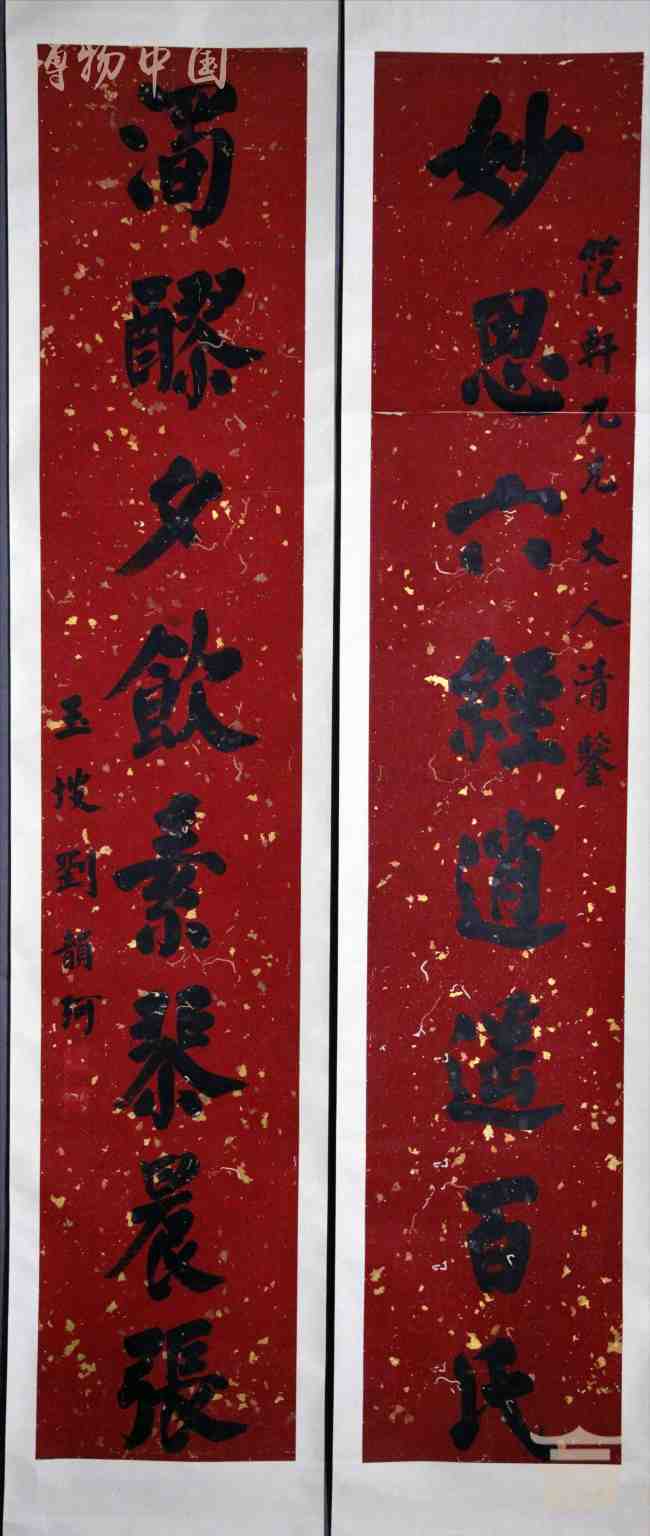 博物中国
妙思六經逍遙百氏
笵軒九兄大人清鑒
濁醪夕飲素琹晨張
玉坡劉韻珂